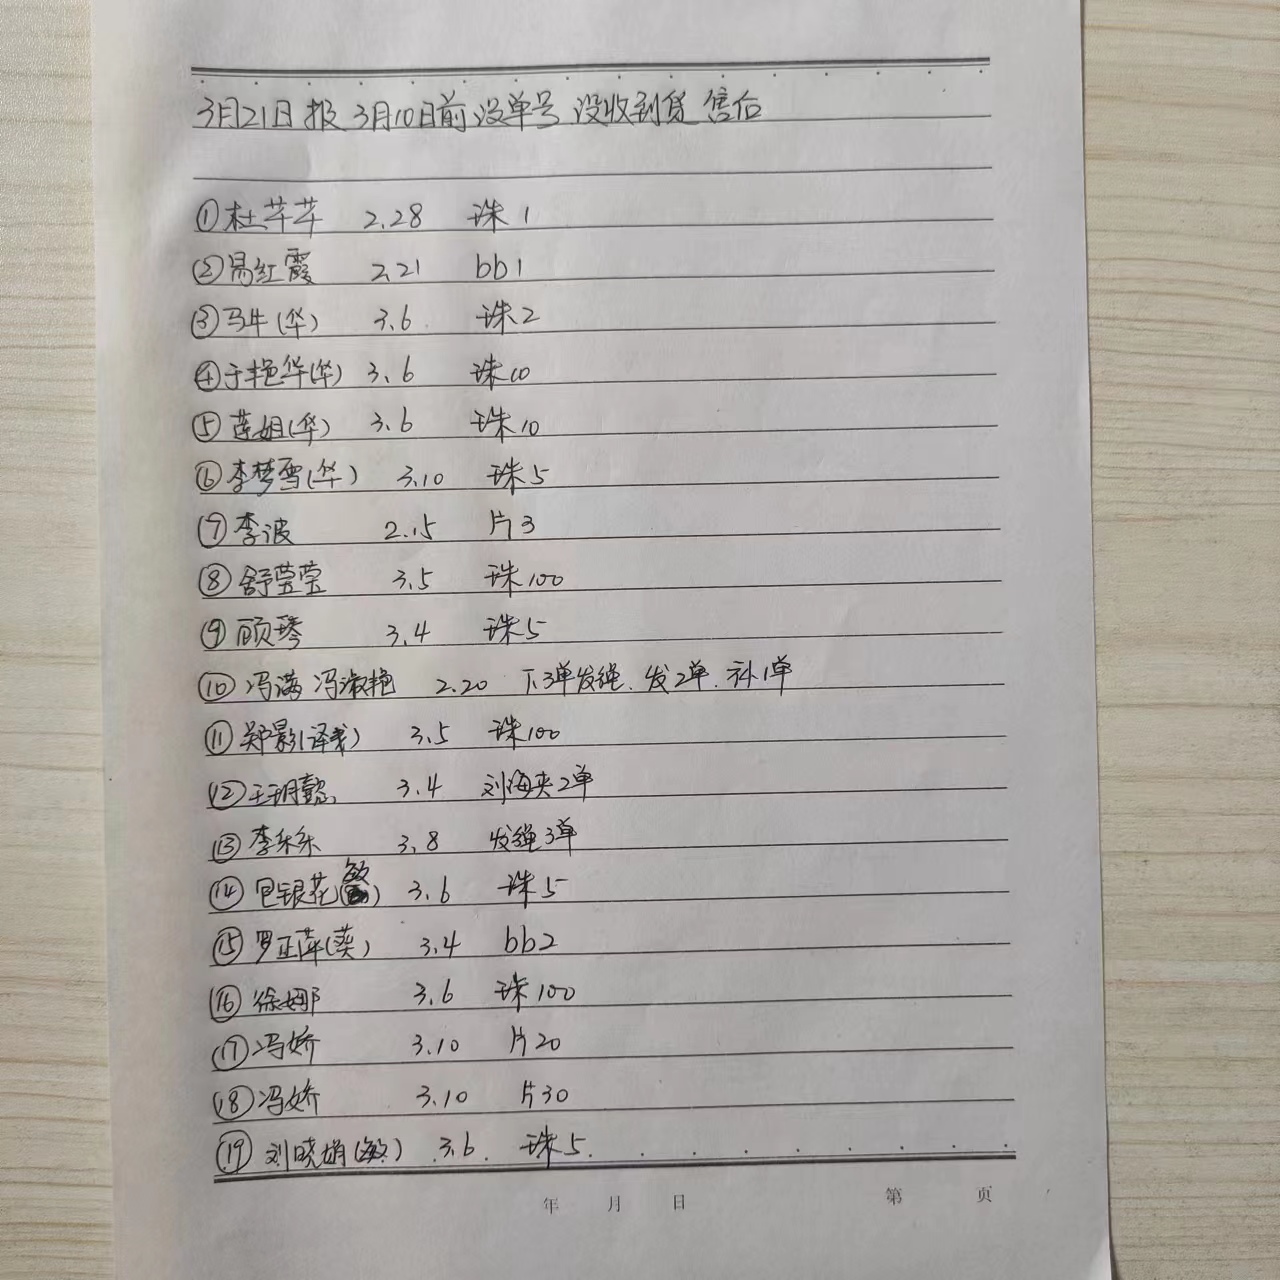 3月21日报 3月10日前没单号 没收到货 售后
①杜芊芊 2.28 珠1
②易红霞 2.21 bb1
③马牛(华) 3.6 珠2
④于艳华(华) 3.6 珠10
⑤莲姐(华) 3.6 珠10
⑥李梦雪(华) 3.10 珠5
⑦李波 2.15 片3
⑧舒莹莹 3.5 珠100
⑨顾琴 3.4 珠5
⑩冯满 冯淑艳 2.20 下3单发绳.发2单.补1单
⑪郑影(译我) 3.5 珠100
⑫王玥懿 3.4 刘海夹2单
⑬李乐乐 3.8 发绳3单
⑭包银花(敏) 3.6 珠5
⑮罗正萍(英) 3.4 bb2
⑯徐娜 3.6 珠100
⑰冯娇 3.10 片20
⑱冯娇 3.10 片30
⑲刘晓娟(敏) 3.6. 珠5.
年 月 日 第 页